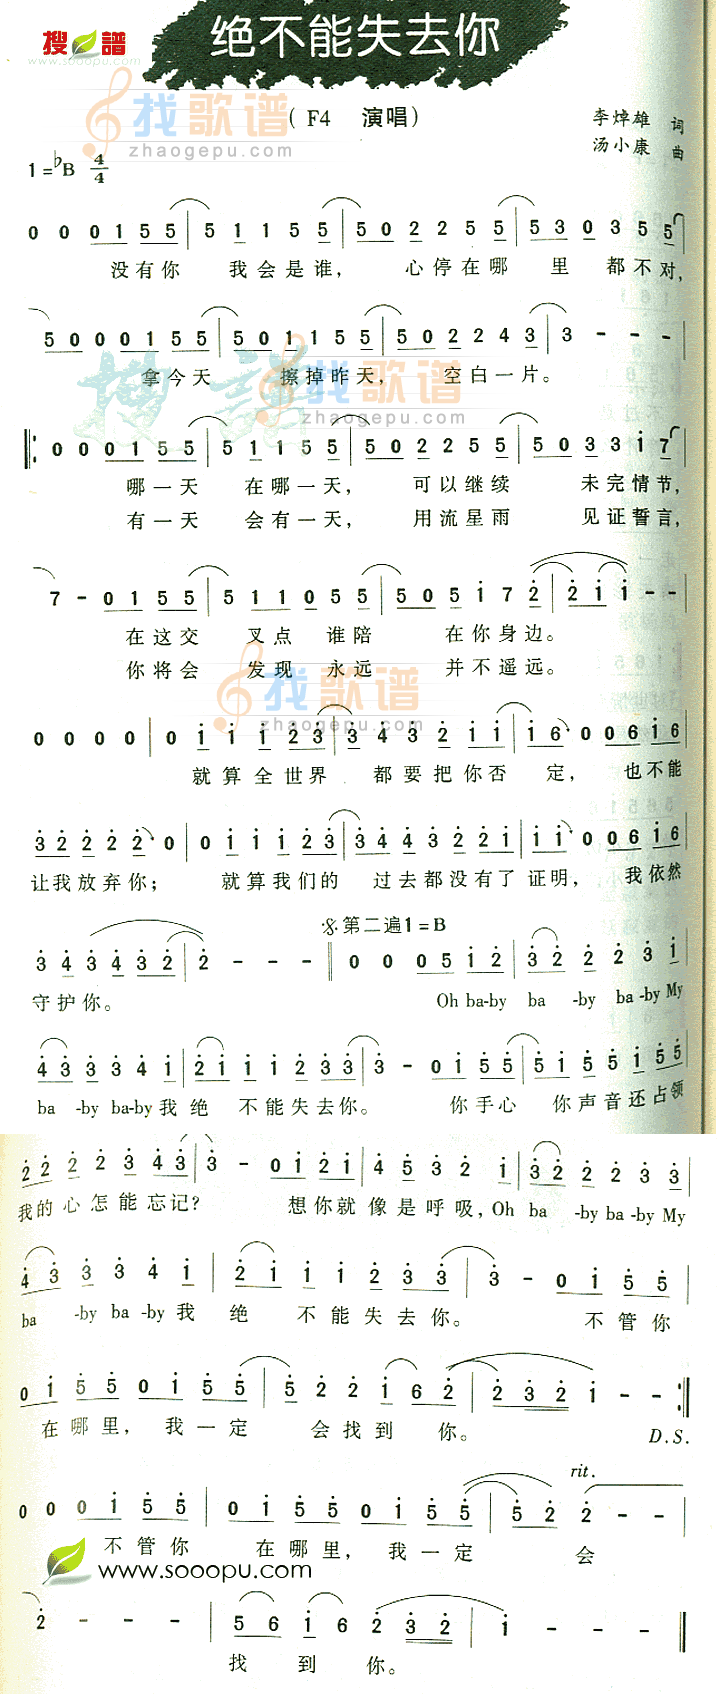 搜譜
www.sooopu.com
绝不能失去你
( F4 演唱)
李焯雄 词
汤小康 曲
找歌谱
zhaogepu.com
1=♭B 4/4
0 0 0 1 5 5 | 5 1 1 5 5 | 5 0 2 2 5 5 | 5 3 0 3 5 5
没有你 我会是谁, 心停在哪 里 都不对,
5 0 0 0 1 5 5 | 5 0 1 1 5 5 | 5 0 2 2 4 3 | 3 - - -
拿今天 擦掉昨天, 空白一片。
搜譜
找歌谱
zhaogepu.com
0 0 0 1 5 5 | 5 1 1 5 5 | 5 0 2 2 5 5 | 5 0 3 3 i 7
哪一天 在哪一天, 可以继续 未完情节,
有一天 会有一天, 用流星雨 见证誓言,
7 - 0 1 5 5 | 5 1 1 0 5 5 | 5 0 5 i 7 2 | 2 i i - -
在这交 叉点 谁陪 在你身边。
你将会 发现 永远 并不遥远。
找歌谱
zhaogepu.com
0 0 0 0 | 0 i i i 2 3 | 3 4 3 2 i i | i 6 0 0 6 i 6
就算全世界 都要把你否 定, 也不能
3 2 2 2 2 0 | 0 i i i 2 3 | 3 4 4 3 2 2 i | i i 0 0 6 i 6
让我放弃你; 就算我们的 过去都没有了 证明, 我依然
𝄋 第二遍1=B
3 4 3 4 3 2 | 2 - - - ‖ 0 0 0 5 1 2 | 3 2 2 2 3 i
守护你。 Oh ba-by ba -by ba-by My
4 3 3 3 4 i | 2 i i i 2 3 3 | 3 - 0 i 5 5 | 5 i 5 5 i 5 5
ba -by ba-by 我 绝 不能失去你。 你手心 你声音还占领
2 2 2 2 3 4 3 | 3 - 0 i 2 i | 4 5 3 2 i | 3 2 2 2 3 3
我的心怎能忘记? 想你就像是呼吸, Oh ba -by ba-by My
4 3 3 3 4 i | 2 i i i 2 3 3 | 3 - 0 i 5 5
ba -by ba-by 我 绝 不能失去你。 不管你
0 i 5 5 0 i 5 5 | 5 2 2 i 6 2 | 2 3 2 i - - :‖
在哪里, 我一定 会找到 你。 D.S.
rit.
0 0 0 i 5 5 | 0 i 5 5 0 i 5 5 | 5 2 2 - -
不管你 在哪里, 我一定 会
www.sooopu.com
2 - - - | 5 6 i 6 2 3 2 | i - - - ‖
找 到 你。